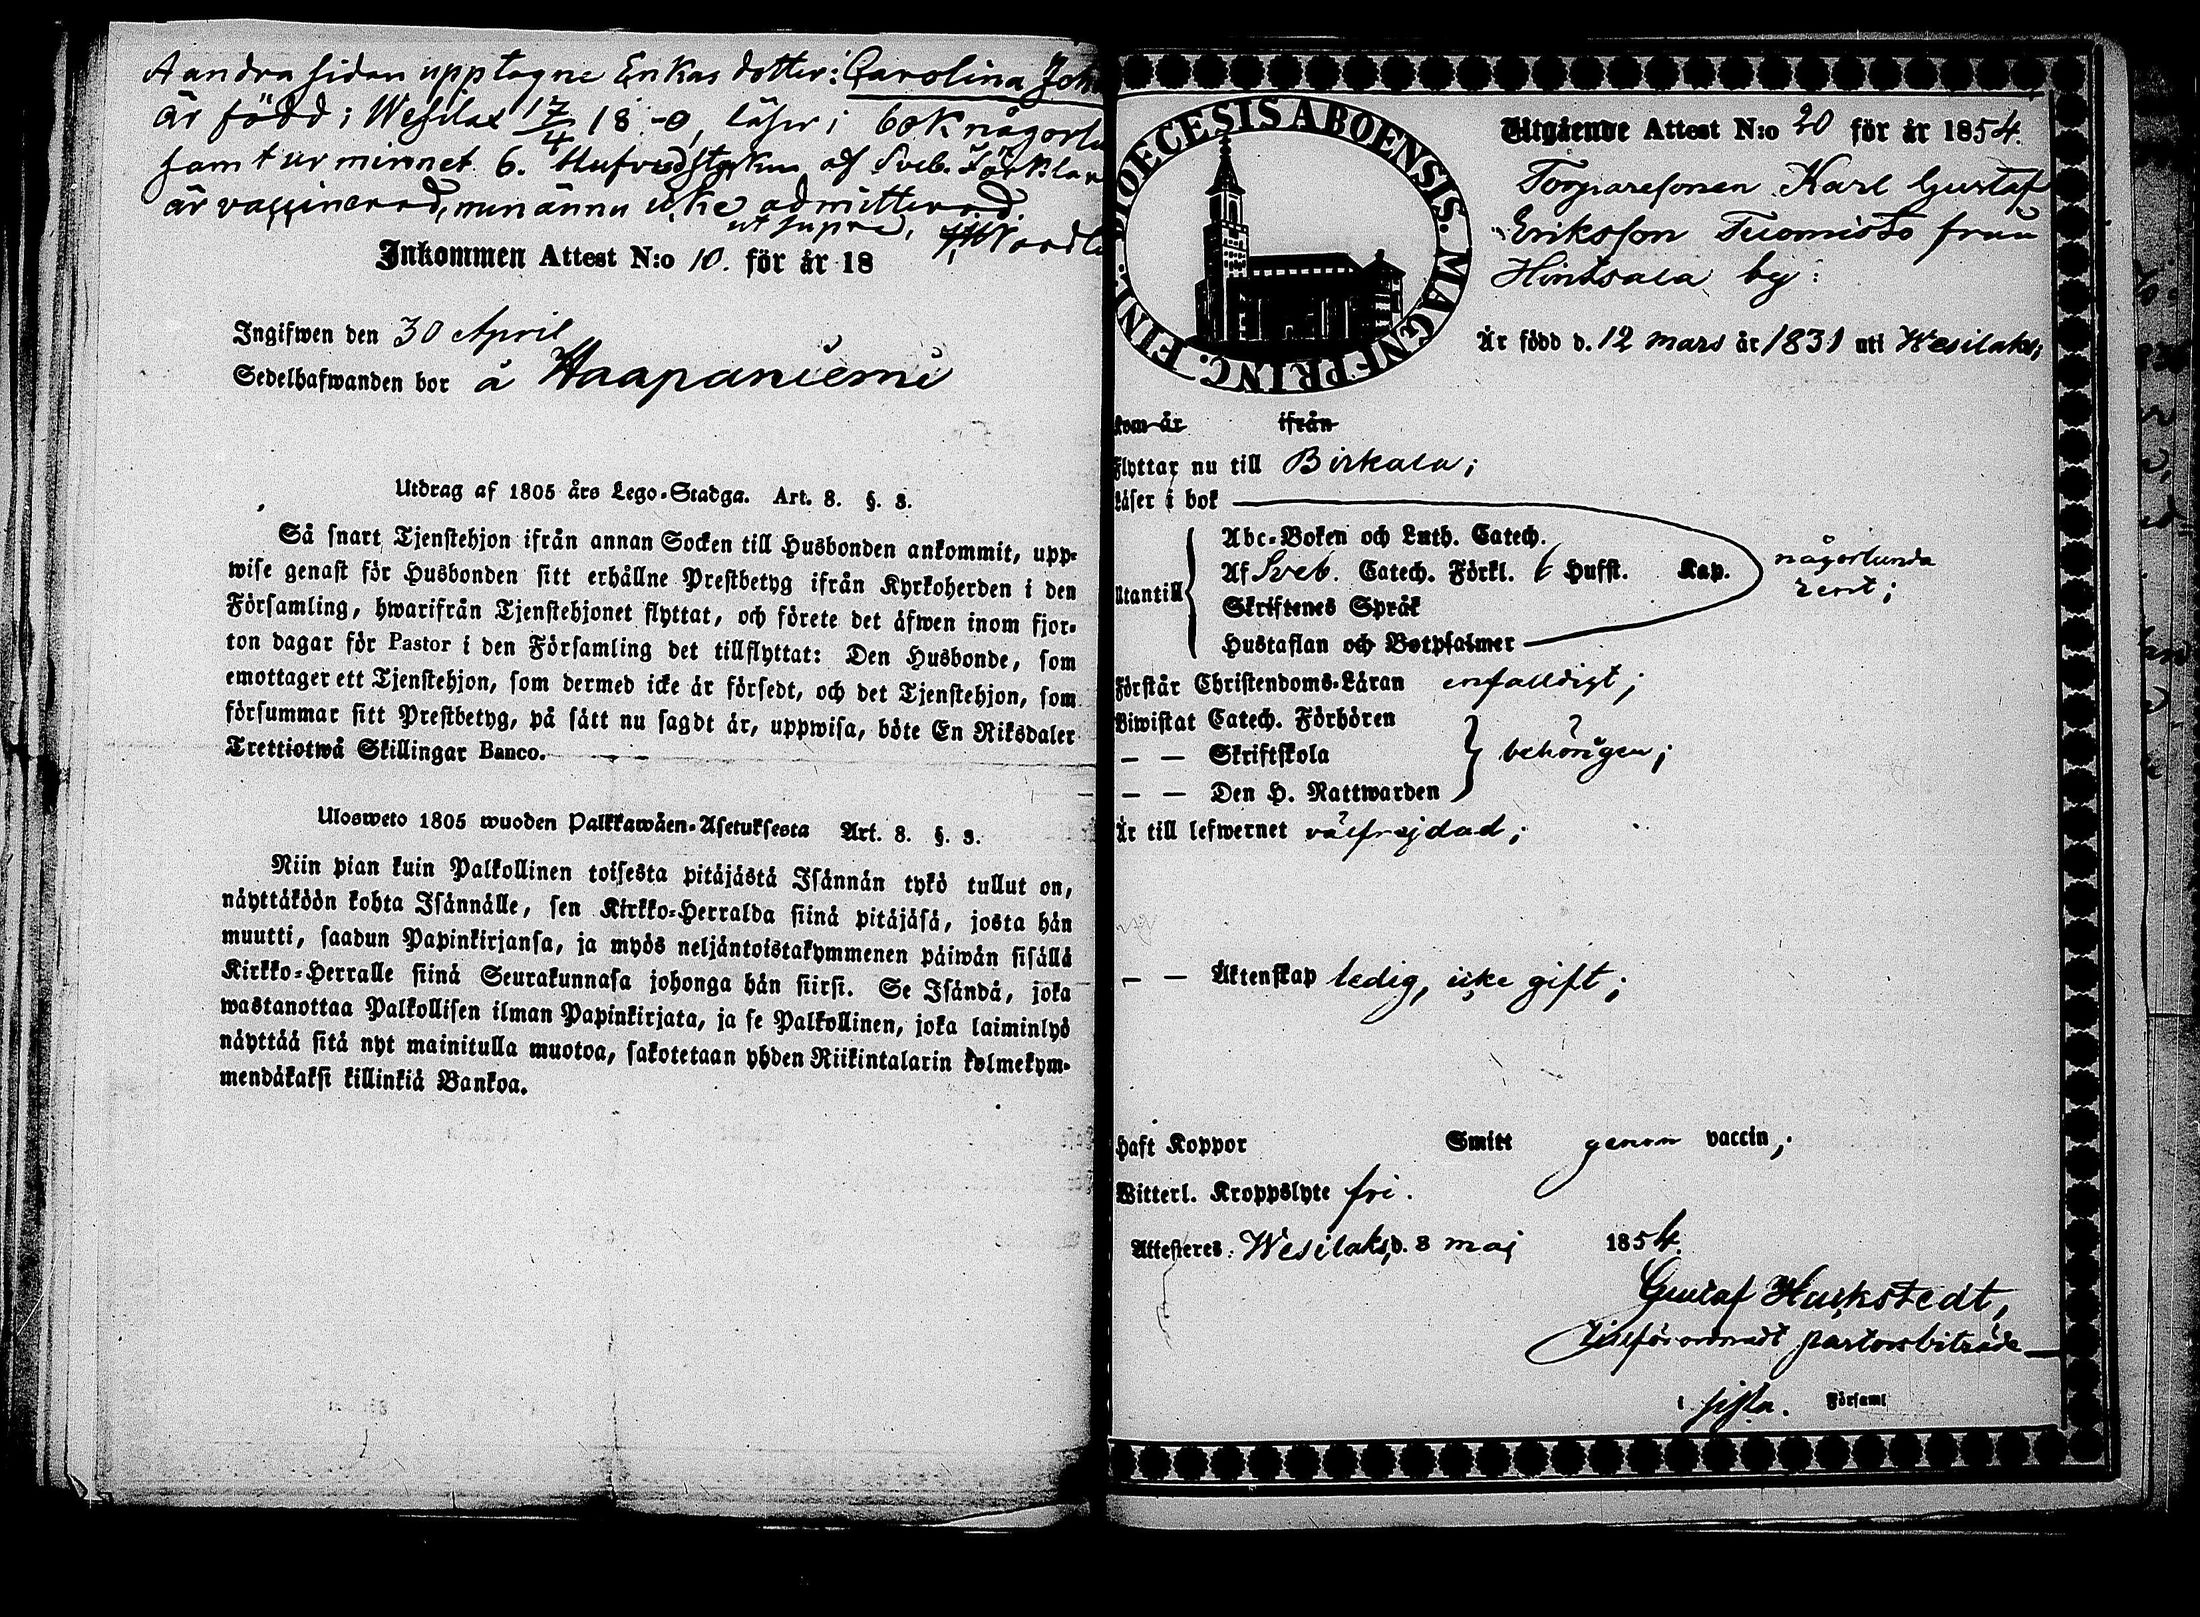 A andra sidan upptagne Enkas dotter: Carolina Joh
är född i Wesilax 17/4 18 0, läser i bok någorlu
samt ur minnet 6. Hufvudstycken af Sveb. Förklar
är vaccinerad, men ännu icke admitterad.
ut supra,
Inkommen Attest N:o 10. för år 18
Ingifwen den 30 April
Sedelhafwanden bor å Haapaniemi
Utdrag af 1805 års Lego-Stadga. Art. 8. §. 3.
Så snart Tjenstehjon ifrån annan Socken till Husbonden ankommit, upp-
wise genast för Husbonden sitt erhållne Prestbetyg ifrån Kyrkoherden i den
Församling, hwarifrån Tjenstehjonet flyttat, och förete det äfwen inom fjor-
ton dagar för Pastor i den Församling det tillflyttat: Den Husbonde, som
emottager ett Tjenstehjon, som dermed icke är försedt, och det Tjenstehjon, som
försummar sitt Prestbetyg, på sätt nu sagdt är, uppwisa, böte En Riksdaler
Trettiotwå Skillingar Banco.
Ulosweto 1805 wuoden Palkkawäen-Asetuksesta Art. 8. §. 3.
Niin pian kuin Palkollinen toisesta pitäjästä Isännän tykö tullut on,
näyttäköön kohta Isännälle, sen Kirkko-Herralda siinä pitäjäsä, josta hän
muutti, saadun Papinkirjansa, ja myös neljäntoistakymmenen päiwän sisällä
Kirkko-Herralle siinä Seurakunnasa johonga hän siirsi. Se Isändä, joka
wastanottaa Palkollisen ilman Papinkirjata, ja se Palkollinen, joka laiminlyö
näyttää sitä nyt mainitulla muotoa, sakotetaan yhden Riikintalarin kolmekym-
mendäkaksi killinkiä Bankoa.
DIOECESIS ABOENSIS. MAGNI PRINC. FINL.
Utgående Attest N:o 20 för år 1854.
Torparesonen Karl Gustaf
Eriksson Tuomisto från
Hintsala by:
Är född d. 12 mars år 1831 uti Wesilaks;
kom år ifrån
Flyttar nu till Birkala;
Läser i bok
Abc-Boken och Luth. Catech.
Utantill Af Sveb. Catech. Förkl. 6 Hufst. Kap. någorlunda
rent;
Skriftenes Språk
Hustaflan och Botpsalmer
Förstår Christendoms-Läran enfalldigt;
Biwistat Catech. Förhören
— — Skriftskola behörigen;
— — Den H. Nattwarden
Är till lefwernet välfrejdad;
— — Äktenskap ledig, icke gift;
Haft Koppor Smitt genom vaccin;
Witterl. Kroppslyte fri.
Attesteres. Wesilaks, d. 3 maj 1854.
Gustaf Huckstedt,
pastorsbiträde
i sista. Församl